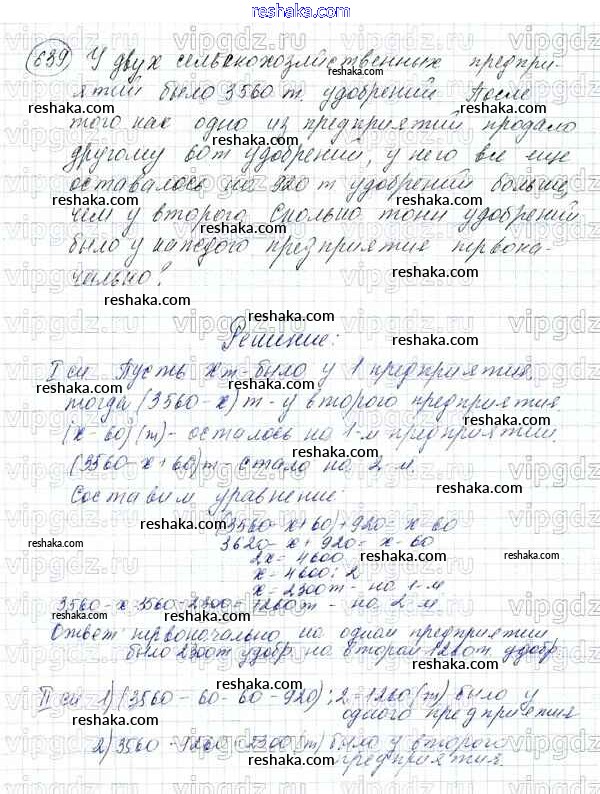 reshaka.com
639 У двух сельскохозяйственных предпри-
ятий было 3560 т. удобрений После
того как одно из предприятий продало
другому 60т удобрений, у него все еще
оставалось на 920 т удобрений больше,
чем у второго Сколько тонн удобрений
было у каждого предприятия первона-
чально?
Решение:
I сп Пусть xт-было у 1 предприятия,
тогда (3560-x)т-у второго предприятия
(x-60)(т)-осталось на 1-м предприятии
(3560-x+60)т-стало на 2-м.
Составим уравнение:
(3560-x+60)+920=x-60
3620-x+920=x-60
2x=4600
x=4600:2
x=2300т-на 1-м
3560-x=3560-2300=1260т-на 2-м
Ответ первоначально на одном предприятии
было 2300т удобр на втором 1260т удобр
II сп 1)(3560-60-60-920):2=1260(т) было у
одного предприятия
2)3560-1260=2300(т) было у второго
предприятия